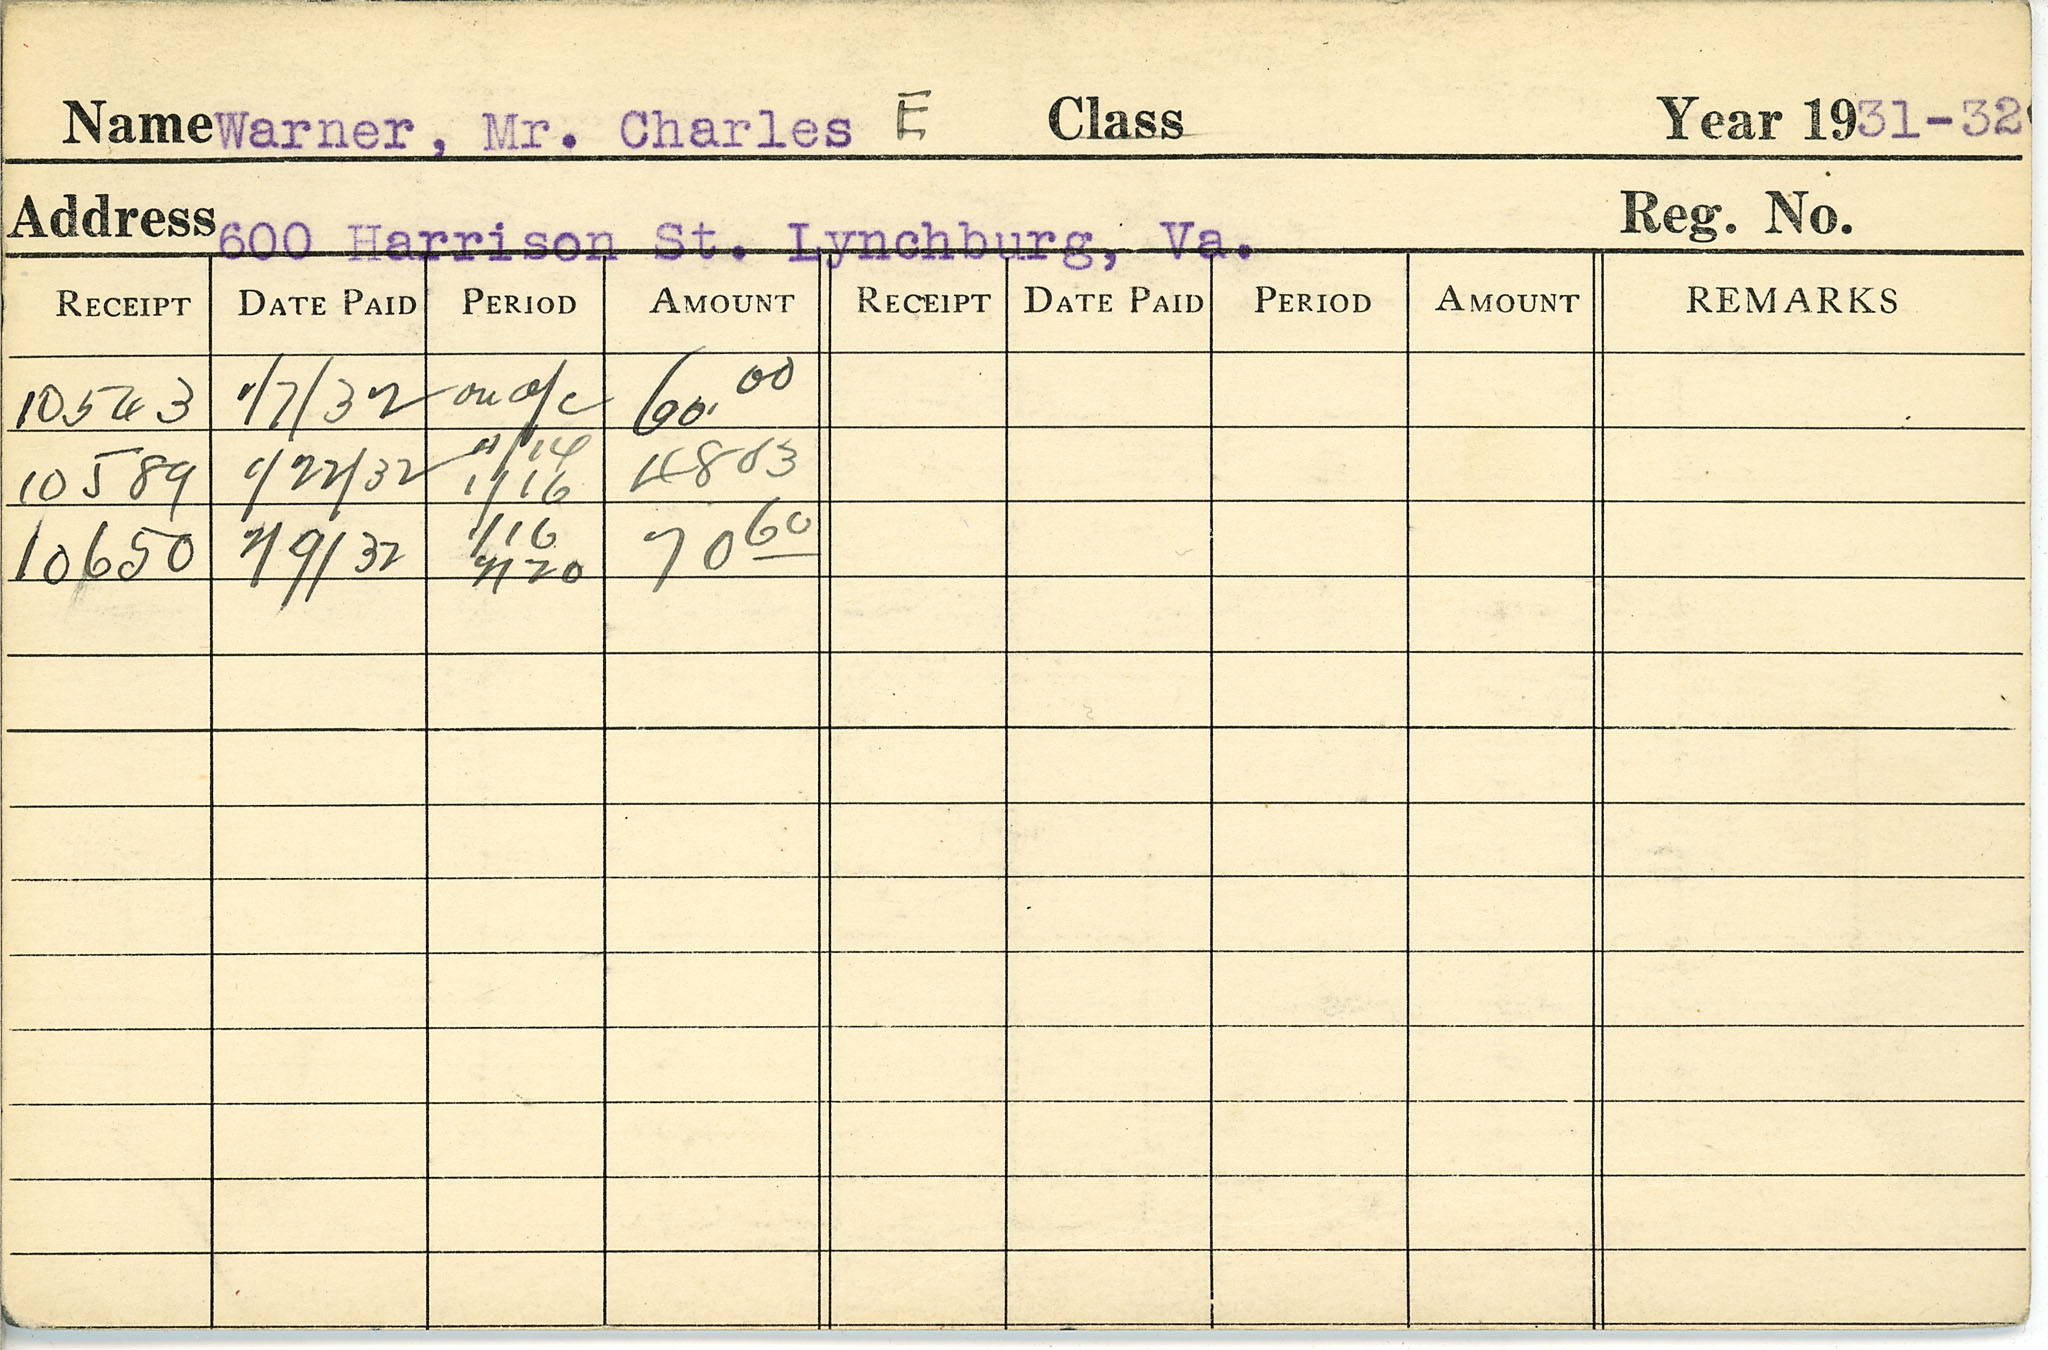 Name Warner, Mr. Charles E Class Year 1931-32
Address 600 Harrison St. Lynchburg, Va. Reg. No.
RECEIPT DATE PAID PERIOD AMOUNT RECEIPT DATE PAID PERIOD AMOUNT REMARKS
10543 1/7/32 on a/c 60.00
10589 1/22/32 1/16 48 03
10650 2/9/32 1/16 2/20 70 60